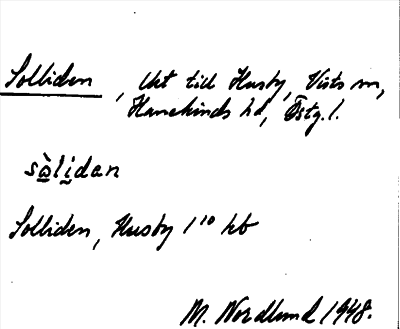 Solliden, lht till Husby, Vists sn,
Hanekinds hd, Östg. l.
sòlidan
Solliden, Husby 1¹⁰ kb
M. Nordlund 1948.